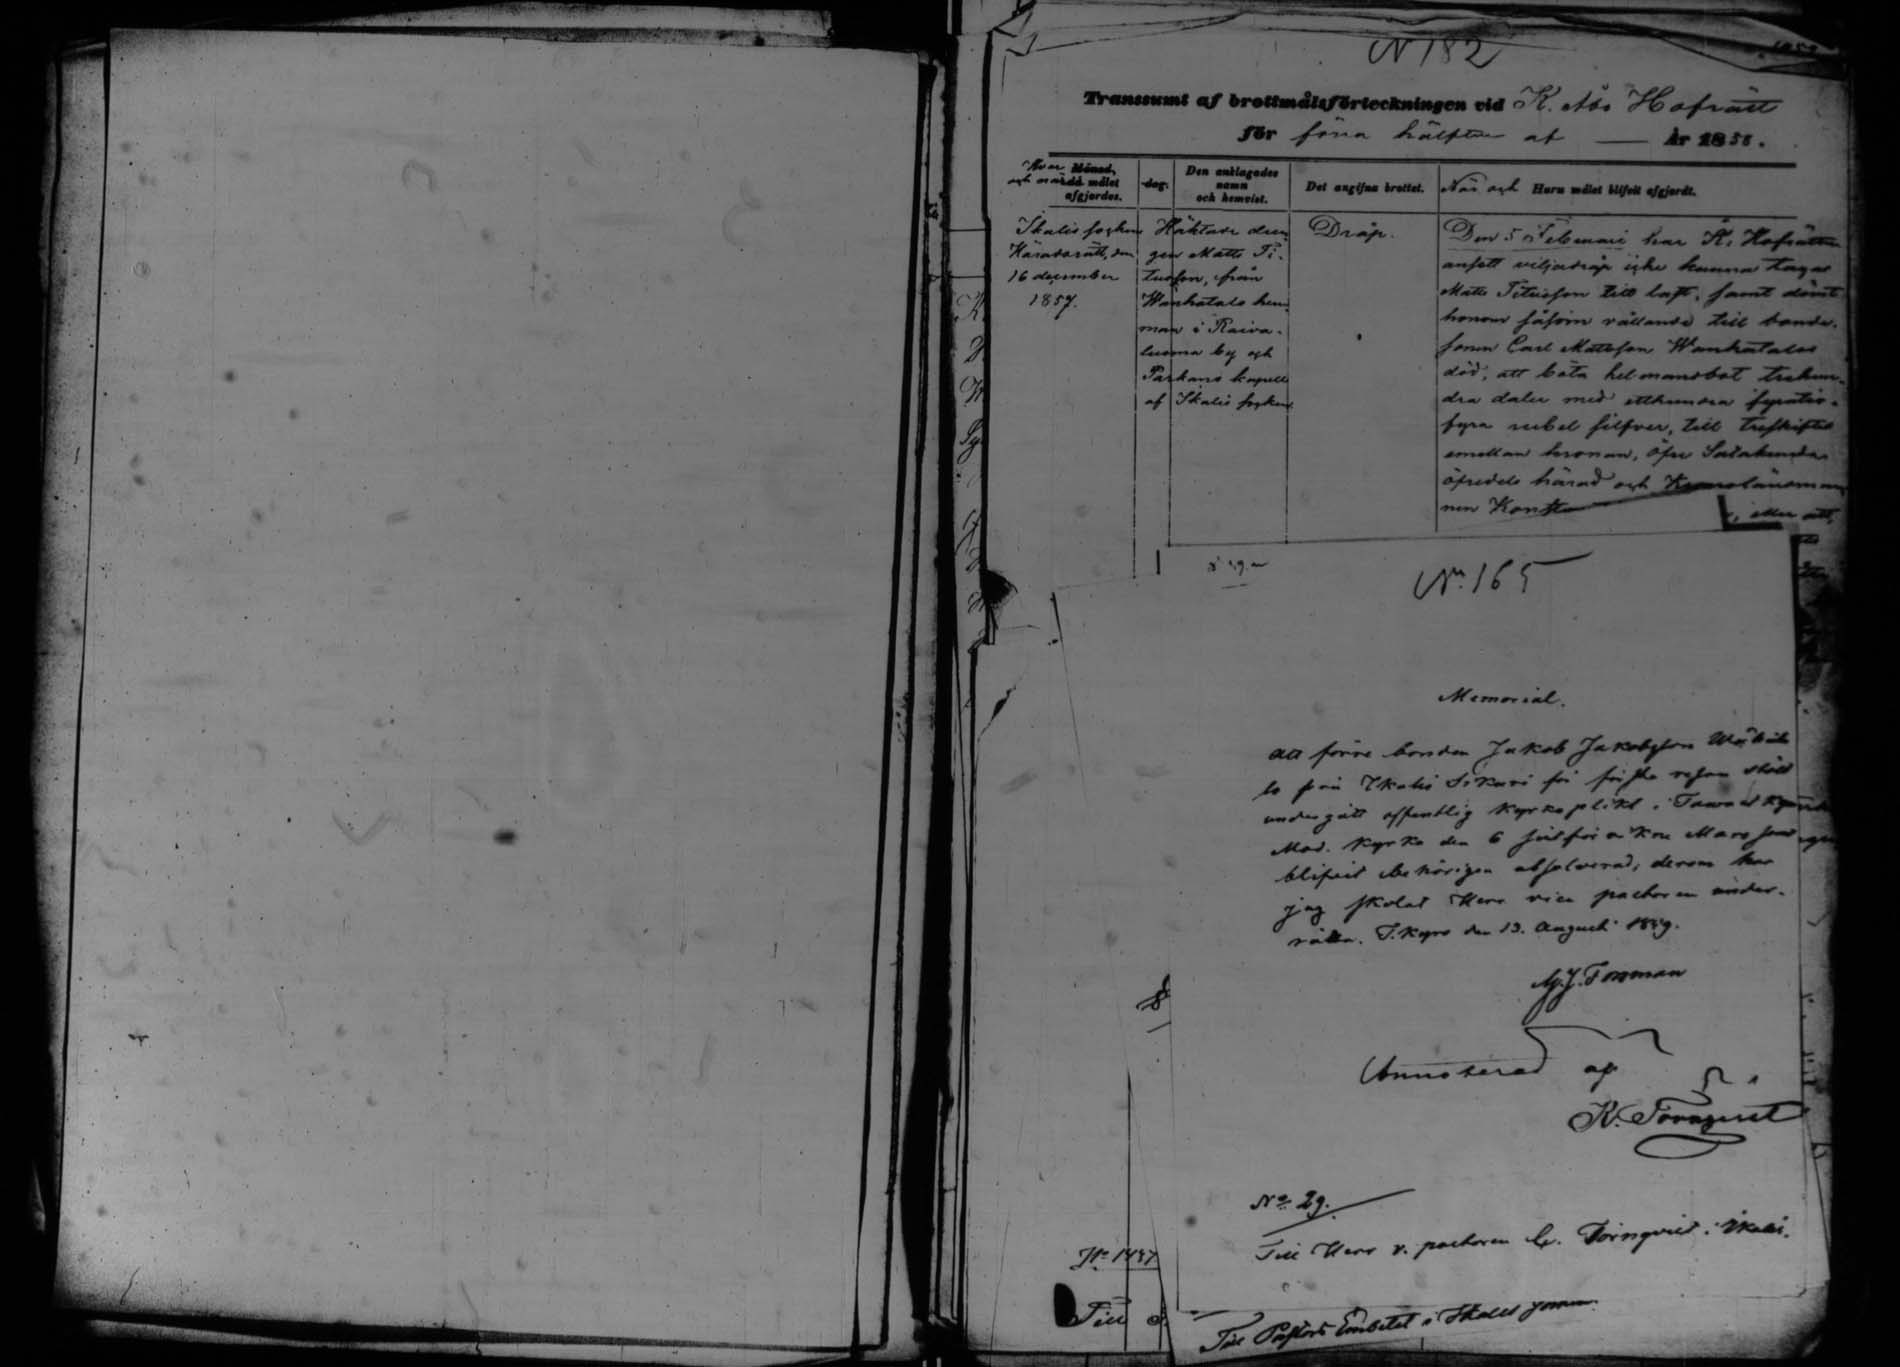 N 182
Transsumt af brottmålsförteckningen vid K. Åbo Hofrätt
för förra hälften af — År 1858.
Hvar och när målet afgjordes.
dag.
Den anklagades namn och hemvist.
Det angifna brottet.
När och Huru målet blifvit afgjordt.
Ikalis socken
Häradsrätt, den
16 december
1857.
Häktade dren-
gen Matts Ti-
tusson, från
Wankatalo hem-
man i Raiva-
luoma by och
Parkano kapell
af Ikalis socken
Dråp.
Den 5 Februari har K. Hofrätten
ansett viljadråp icke kunna läggas
Matts Titusson till last, samt dömt
honom såsom vållande till bonde-
sonen Carl Mattsson Wankatalos
död, att böta hel mansbot trehun-
dra daler med etthundra fyratio-
fyra rubel silfver, till treskiftes
emellan kronan, Öfre Satakunda
öfredels härad och Kronolänsman-
nen Konst
, eller att,
No. 165
Memorial.
Att förre bonden Jakob Jakobsson
lo från Ikalis för första resan stöld
undergått offentlig kyrkoplikt i Tawastkyro
Mod. kyrka den 6 sistför Mars samt
blifvit behörigen absolverad; derom har
jag skolat Herr vice pastoren under-
rätta. T.kyro den 13. Augusti 1859.
M. J. Forsman
Annoterad af
K. Törnqvist
No 29.
Till Herr v. pastoren C. Törnqvist i Ikalis.
No 1437
Till
Till Pastors Embetet i Ikalis